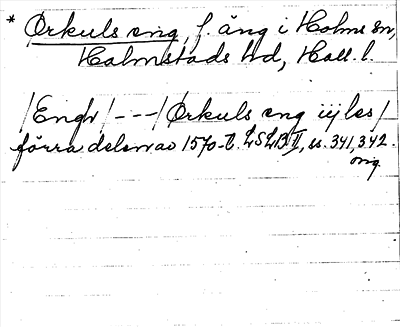 * Orkuls eng, f. äng i Holms sn,
Halmstads hd, Hall. l.
/Engh/ --- /Orkuls eng iij les/
förra delen av 1570-t. LSLB II, ss. 341, 342.
orig.